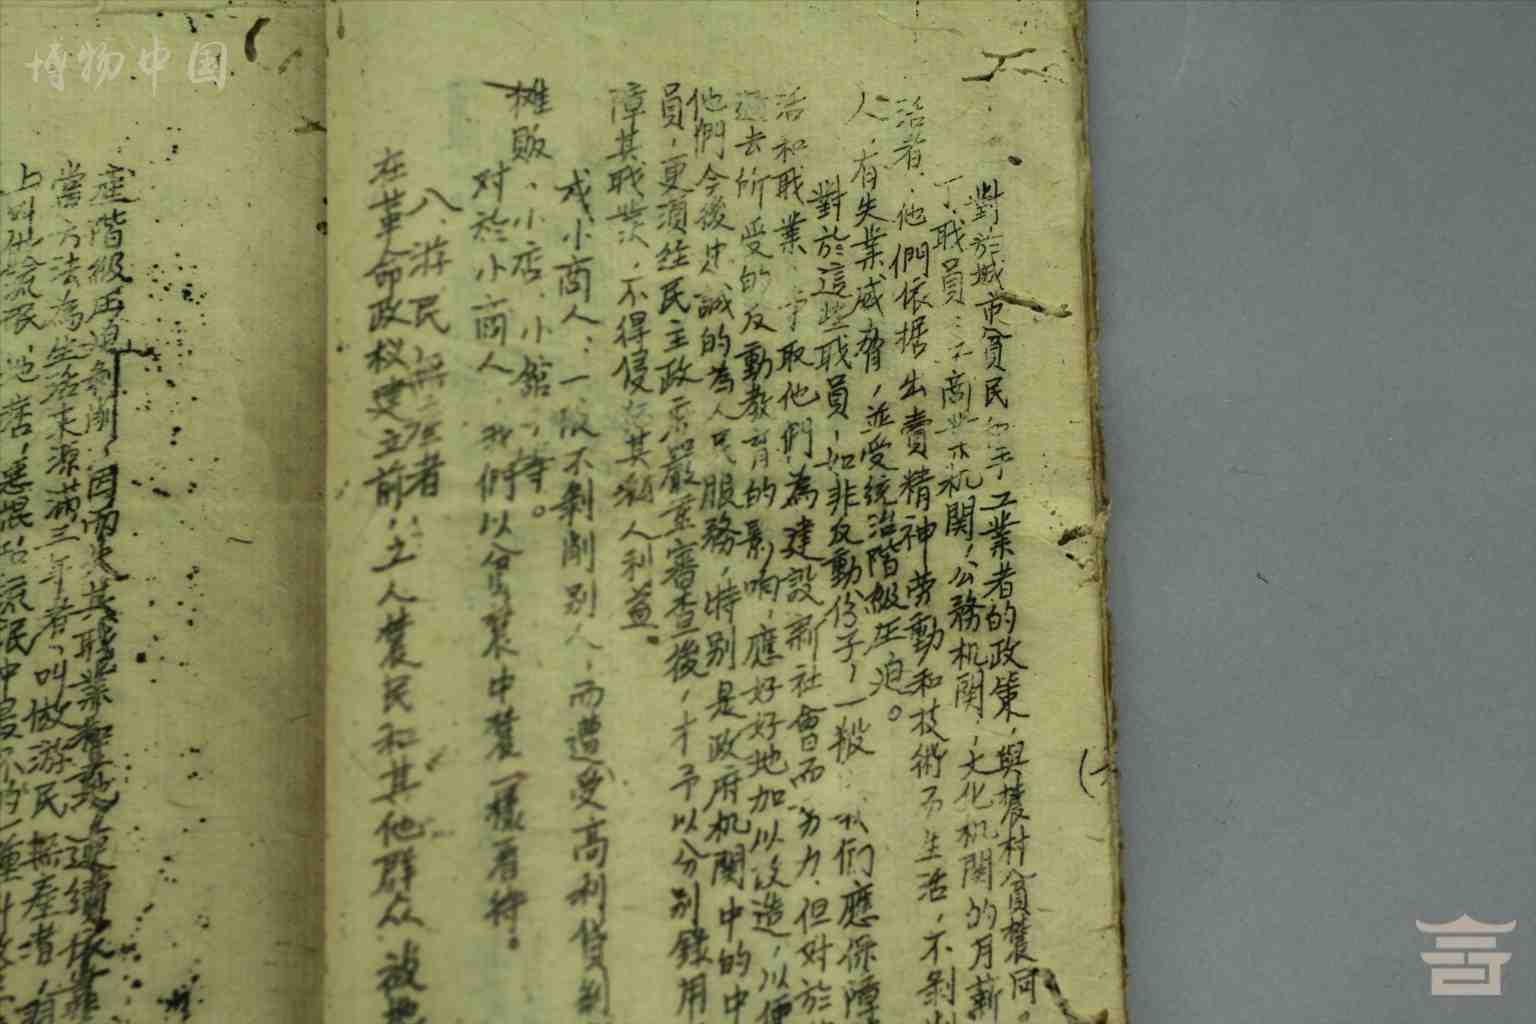 博物中国
對於城市貧民和手工業者的政策，與農村貧農同。
丁、職員：工商業机関，公務机関，文化机関的月薪
活者，他們依据出賣精神劳動和技術而生活，不剝削
人，有失業威脅，並受統治階級压迫。
對於這些職員，如非反動份子，一般 我们應保障
活和职業，争取他們為建設新社會而努力，但对於
過去所受的反動教育的影响，應好好地加以改造，以便
他們今後忠誠的為人民服務，特別是政府机関中的中
員，更須經民主政府嚴重審查後，才予以分别錄用
障其职業，不得侵 其私人利益。
戊小商人：一般不剝削别人，而遭受高利貸剝
攤販、小店、小舘、等。
对於小商人，我們以貧農中農一樣看待。
八、游民無產者
在革命政权建立前，工人農民和其他群众被地
產階級压迫剝削，因而失其職業和 連續依靠
當方法為生活来源满三年者，叫做游民無產者，
上叫做流氓、地痞，